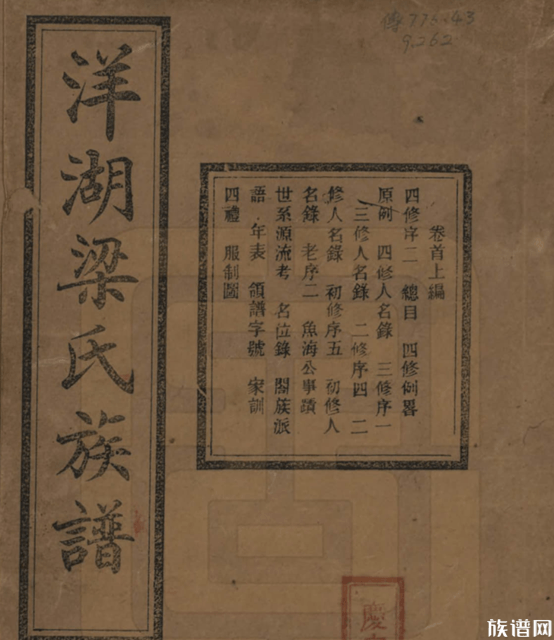 傳776.43
9.262
洋湖梁氏族譜
卷首上編
四修序二 總目 四修例畧
原例 四修人名錄 三修序一
三修人名錄 二修序四 二
修人名錄 初修序五 初修人
名錄 老序二 魚海公事蹟
世系源流考 名位錄 閤族派
語 年表 領譜字號 家訓
四禮 服制圖
慶
族谱网